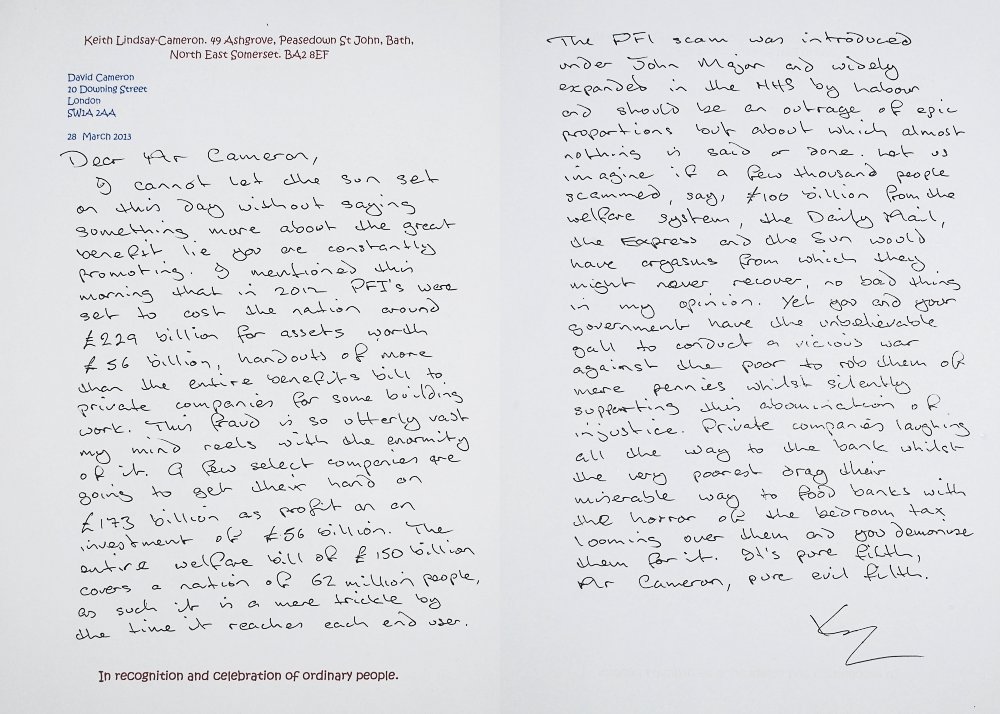 Keith Lindsay-Cameron. 49 Ashgrove, Peasedown St John, Bath,
North East Somerset. BA2 8EF
David Cameron
10 Downing Street
London
SW1A 2AA
28 March 2013
Dear Mr Cameron,
I cannot let the sun set
on this day without saying
something more about the great
benefit lie you are constantly
promoting. I mentioned this
morning that in 2012 PFI's were
set to cost the nation around
£229 billion for assets worth
£56 billion, handouts of more
than the entire benefits bill to
private companies for some building
work. This fraud is so utterly vast
my mind reels with the enormity
of it. A few select companies are
going to get their hand on
£173 billion as profit on an
investment of £56 billion. The
entire welfare bill of £150 billion
covers a nation of 62 million people,
as such it is a mere trickle by
the time it reaches each end user.
In recognition and celebration of ordinary people.
The PFI scam was introduced
under John Major and widely
expanded in the NHS by Labour
and should be an outrage of epic
proportions but about which almost
nothing is said or done. Let us
imagine if a few thousand people
scammed, say, £100 billion from the
welfare system, the Daily Mail,
the Express and the Sun would
have orgasms from which they
might never recover, no bad thing
in my opinion. Yet you and your
government have the unbelievable
gall to conduct a vicious war
against the poor to rob them of
mere pennies whilst silently
supporting this abomination of
injustice. Private companies laughing
all the way to the bank whilst
the very poorest drag their
miserable way to food banks with
the horror of the bedroom tax
looming over them and you demonise
them for it. It's pure filth,
Mr Cameron, pure evil filth.